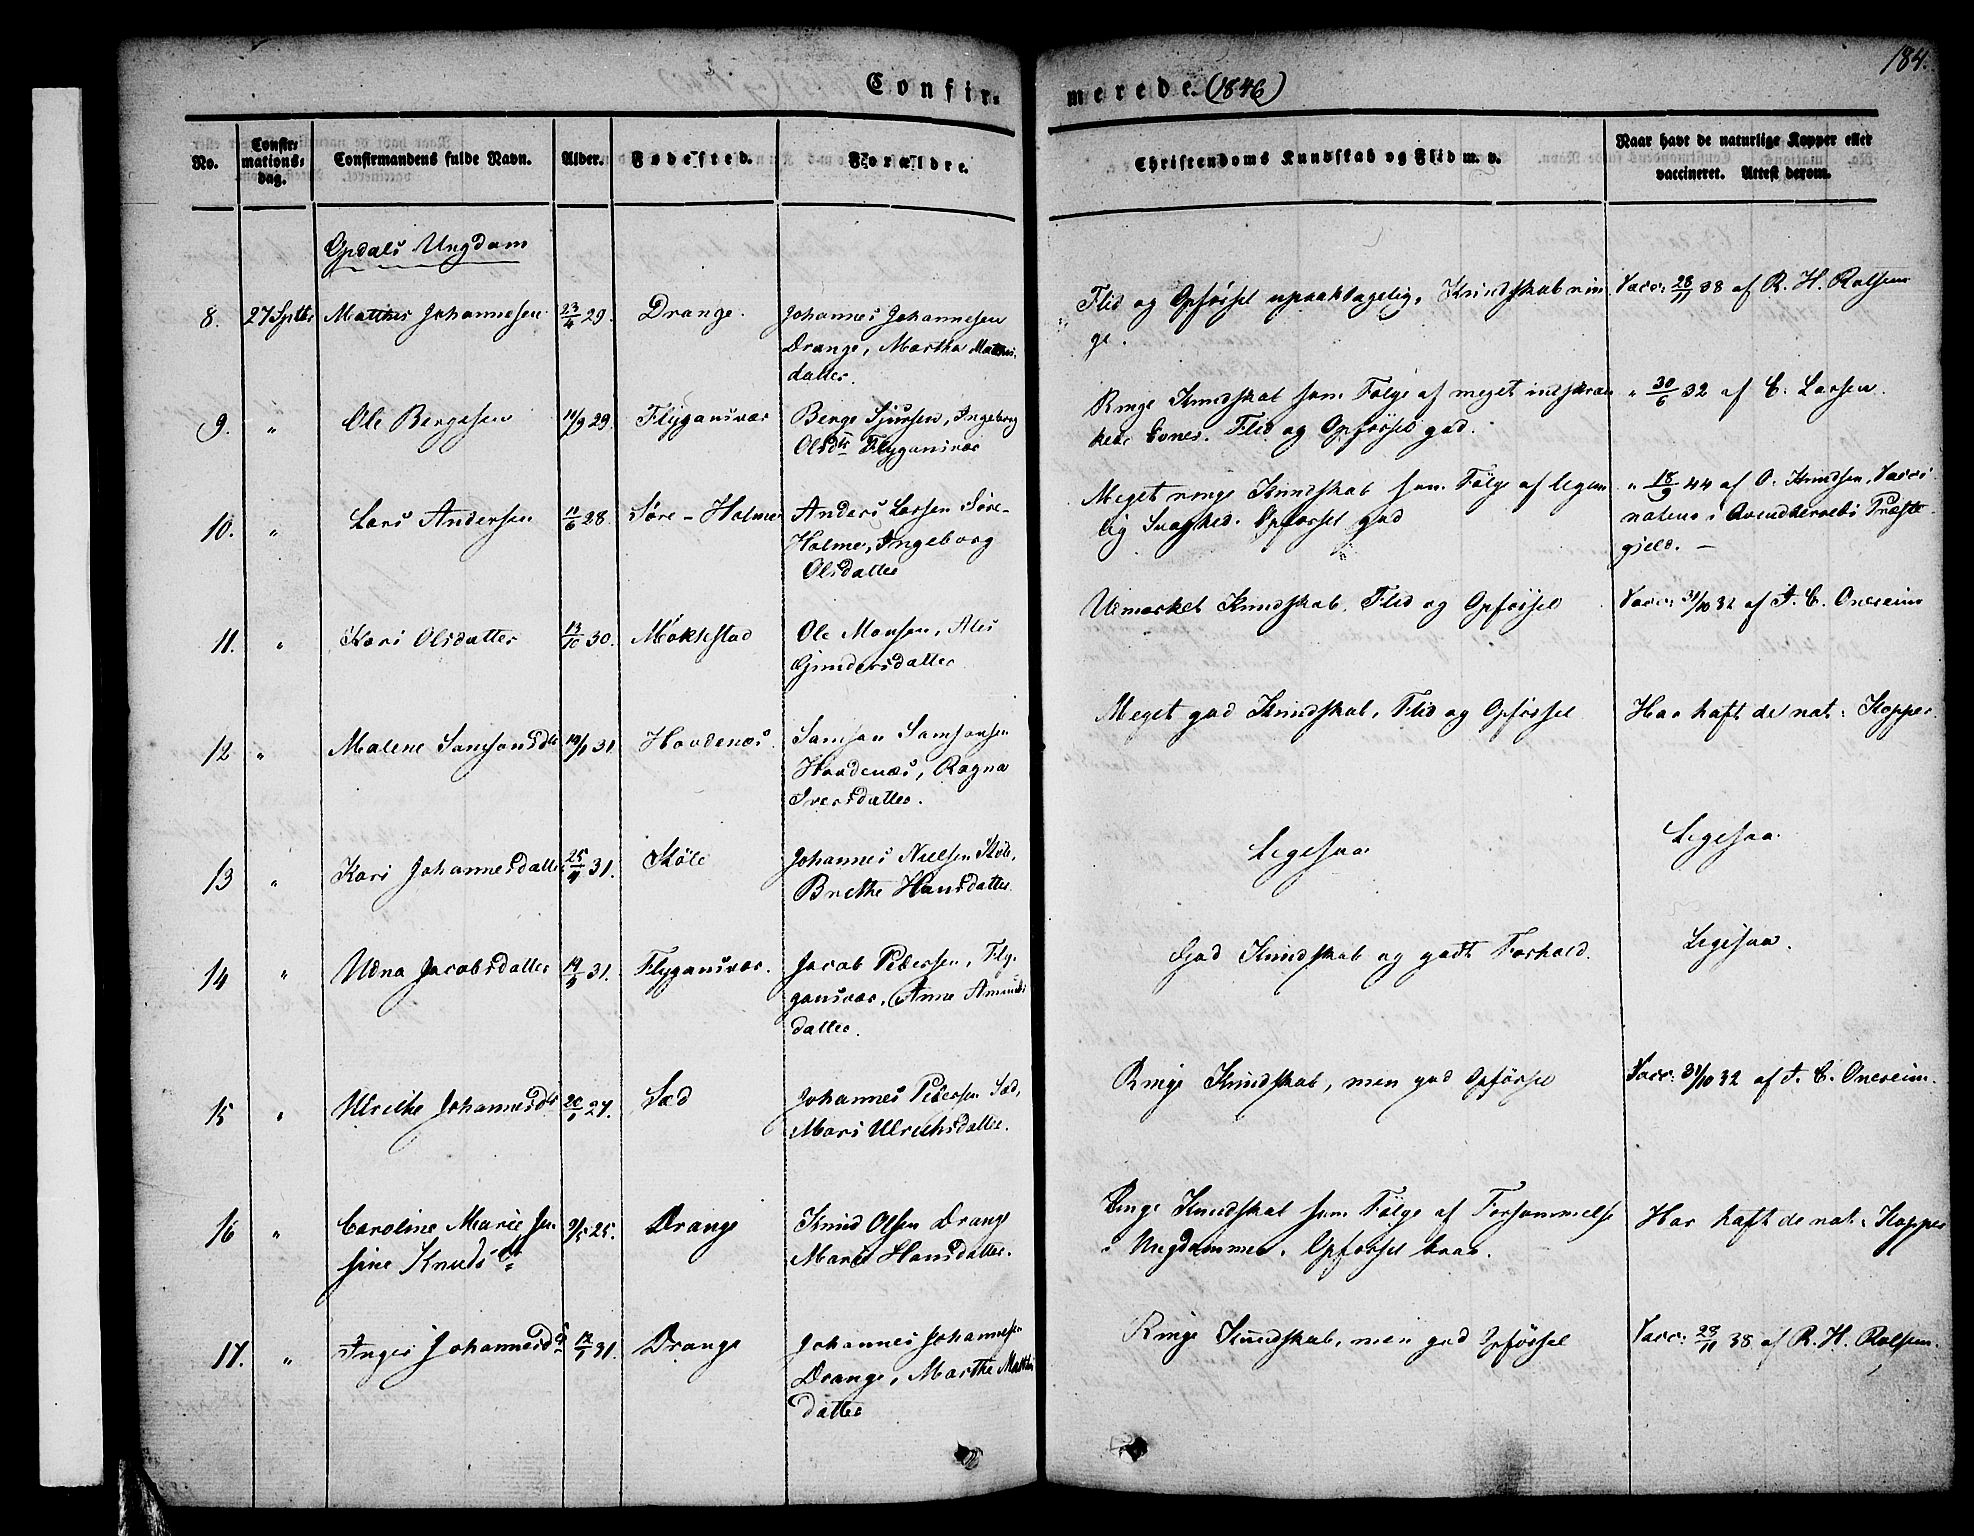 184.
Confir- merede. (1846)
No. Confir-mations-dag. Confirmandens fulde Navn. Alder. Fødested. Forældre. Christendoms Kundskab og Flid m. v. Naar havt de naturlige Kopper eller vaccineret. Attest derom.
Opdals Ungdom
8. 27 Septbr Mathis Johannesen 23/4 29. Drange. Johannes Johannesen Flid og Opførsel upaaklagelig, Kundskab rin- Vacc: 28/11 38 af R. H. Rolfsen
Drange, Martha Mathis- ge.
datter.
9. " Ole Bergesen 14/9 29. Flygansvær Berge Sjursen, Ingeborg Ringe Kundskab som Følge af meget indskræn- " 30/6 32 af C. Larsen.
Olsdtr Flygansvær kede Evner. Flid og Opførsel god.
10. " Lars Andersen 11/6 28. Søre-Holme Anders Larsen Søre- Meget ringe Kundskab som Følge af legem- " 18/9 44 af O. Knudsen, Vacci-
Holme, Ingeborg lig Svaghed. Opførsel god nateur i Qvindherreds Præste-
Olsdatter gjeld. —
11. " Kari Olsdatter 13/10 30. Møklestad Ole Monsen, Ales Udmærket Kundskab, Flid og Opførsel Vacc: 31/10 32 af A. C. Onereim
Gundersdatter
12 " Malene Samsonsdtr 10/1 31. Hovdenæs. Samson Samsonsen Meget god Kundskab, Flid og Opførsel Har haft de nat: Kopper.
Hovdenæs, Ragna
Iversdatter.
13 " Kari Johannesdatter 25/4 31. Støle Johannes Nielsen Støle, Ligesaa Ligesaa
Brithe Hansdatter
14 " Udna Jacobsdatter 14/4 31. Flygansvær. Jacob Pedersen, Fly- God Kundskab og godt Forhold. Ligesaa.
gansvær, Anne Amunds
datter.
15 " Ulrikke Johannesdtr 20/1 27. Sæd Johannes Pedersen Sæd, Ringe Kundskab, men god Opførsel Vacc: 31/10 32 af A. C. Onereim.
Mari Ulrichsdatter.
16 " Caroline Marie Jen- 9/5 25. Drange Knud Olsen Drange Ringe Kundskab som Følge af Forsømmelse Har haft de nat: Kopper
sine Knudsdt Marie Hansdatter. i Ungdommen. Opførsel brav.
17. " Inger Johannesdtr 12/1 31. Drange Johannes Johannesen Ringe Kundskab, men god Opførsel Vacc: 28/11 38 af R. H. Rolfsen.
Drange, Marthe Mathis
datter